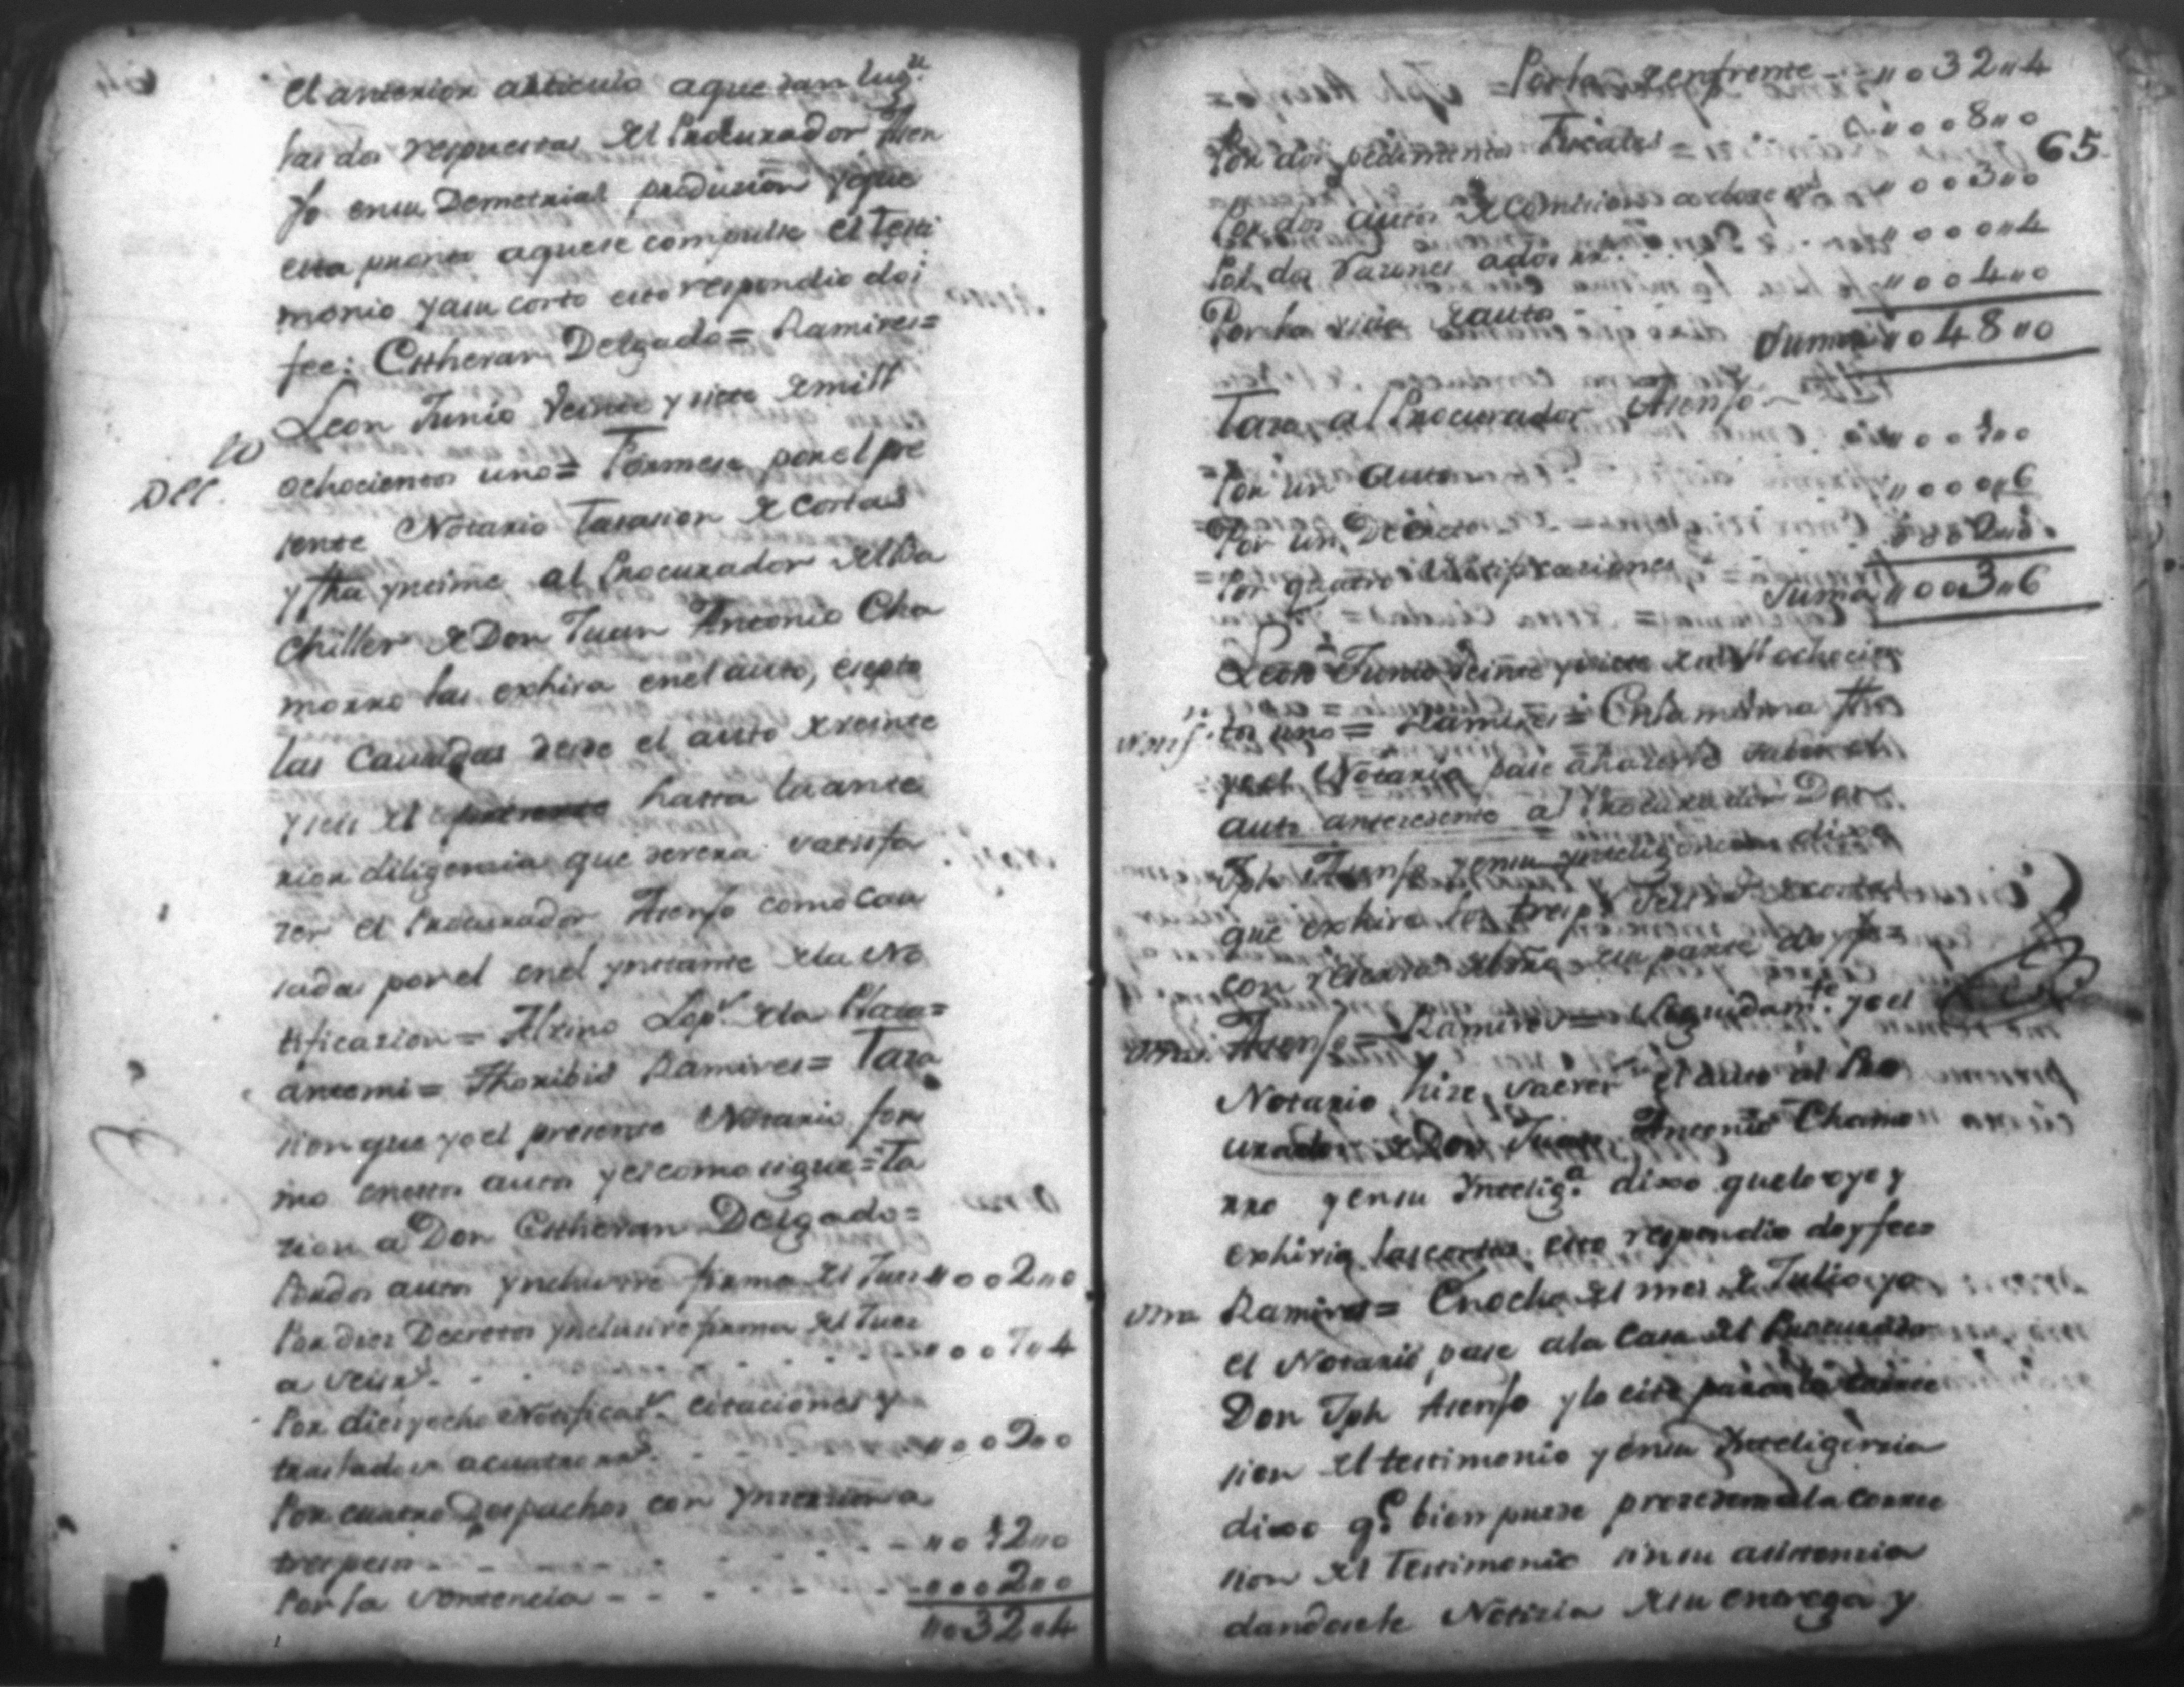 el anterior articulo aque dan lug.r
las dos respuestas del Procurador Asen
jo en su Demetrial produsion y que
esta pronto aquese compulse el testi
monio y asu corto esto respondio doi
fee: Estheran Delgado= Ramires=
Leon Junio veinte y siete de mill
Dec.to
ochocientos uno= Formese por el pre
sente Notario tasasion de costas
y fha ynsime al Procurador del Ba
chiller de Don Juan Antonio Cha
morro las exhiva en el auto, esepto
las causadas desde el auto de veinte
y seis del hasta la ante
rior diligencia que devera satisfa
zer el Procurador Asenjo como cau
sadas por el en el ynstante de la No
tificazion= Alvino Lop.s de la Plaza=
antemi= Thoribio Ramires= Tasa
sion que yo el presente Notario for
mo enestos autos y es como sigue= Ta
zion a Don Estheran Delgado=
Por dos autos ynclusive firma del Juez " 0 0 2 " 0
Por diez Decretos ynclusive firma del Juez
a seis r.s - - - - " 0 0 7 " 4
Por dies y ocho Notificas.s citaciones y
traslados acuatro rr.s - - " 0 0 9 " 0
Por cuatro Despachos con ynsersion a
tres pesos - - - - " 0 12 " 0
Por la sentencia - - - - " 0 0 2 " 0
" 0 32 " 4
Por la de enfrente - " 0 32 " 4
65
Por dos pedimentos Fiscales - " 0 0 8 " 0
Por dos autos de Comision a doze rr.s " 0 0 3 " 0
Por dos Razones a dos rr. " 0 0 0 " 4
Por la vista de autos - " 0 0 4 " 0
Suma " 0 48 " 0
Tasa al Procurador Asenjo -
Por un Auto " 0 0 1 " 0
Por un Decreto " 0 0 0 " 6
Por quatro Notificaziones " 0 0 2 " 0
Suma " 0 0 3 " 6
Leon Junio veinte y siete de mill ochocien
tos uno= Ramires= En la misma fha
yo el Notario pase ahazerle saber el
auto antecedente al Procurador Don
Jph Asenjo y en su ynteligencia dixo
que exhive los tres p.s seis rr.s de costas
con reserva de su parte doy fe=
Otra
Asenjo= Ramires= Seguidam.te yo el
Notario hize saver el auto al Pro
curador de Don Juan Antonio Chamo
rro y en su Yntelig.a dixo que lo oye y
exhiria las costas esto respondio doy fee=
Otra
Ramires= En ocho del mes de Julio yo
el Notario pase ala Casa del Procurador
Don Jph Asenjo y lo cité para la correc
sion del testimonio y en su Ynteligenzia
dixo q.e bien puede procederse ala correc
sion del Testimonio sin su asistencia
dandosele Notizia de su entrega y